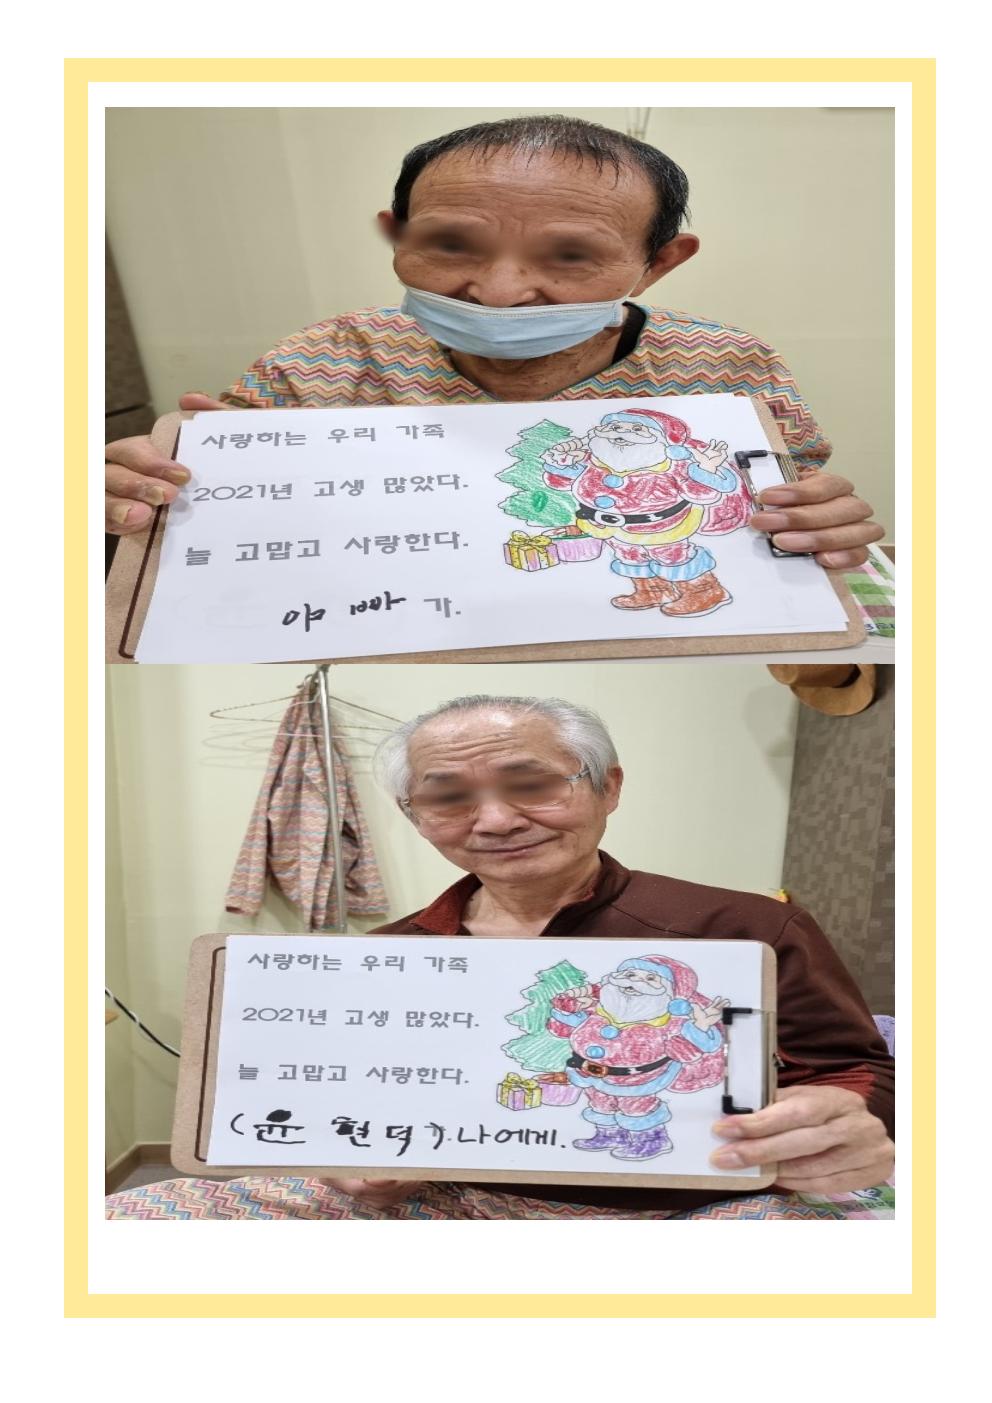 사랑하는 우리 가족
2021년 고생 많았다.
늘 고맙고 사랑한다.
가.
사랑하는 우리 가족
2021년 고생 많았다.
늘 고맙고 사랑한다.
(윤 현덕 가.나에게.